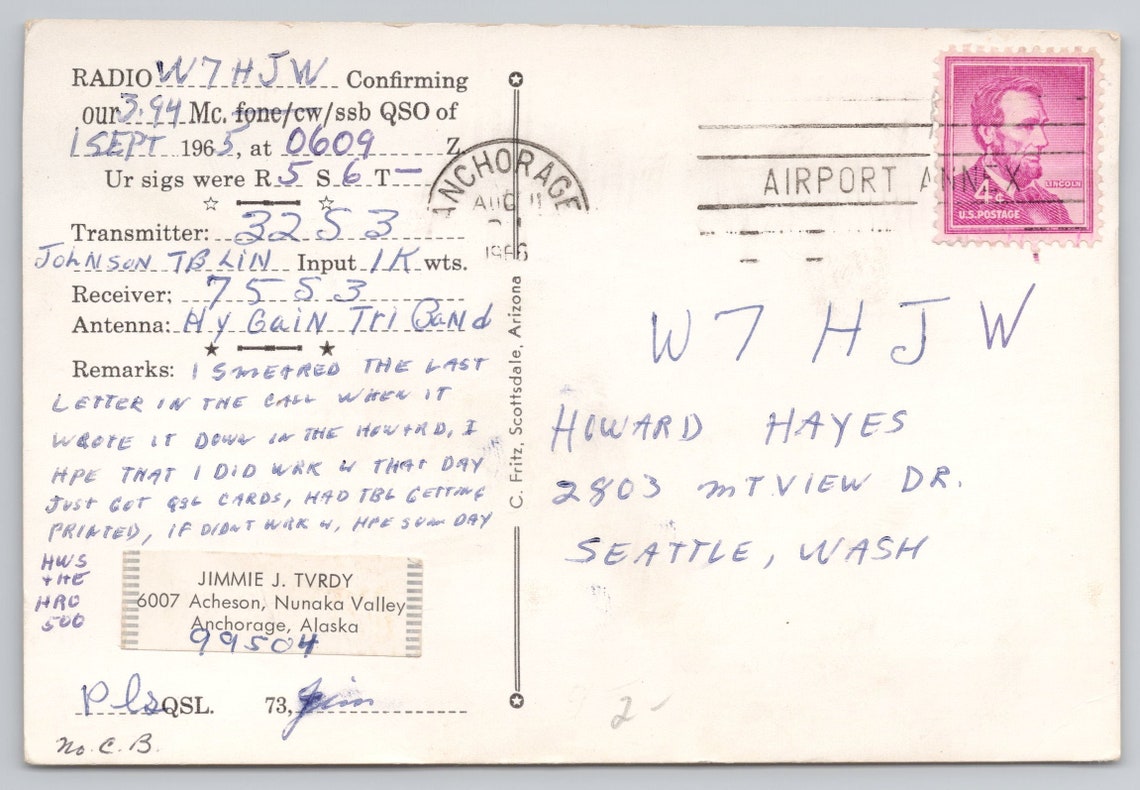 RADIO W7HJW Confirming
our 3.94 Mc. fone/cw/ssb QSO of
1 SEPT 1965, at 0609 Z
Ur sigs were R 5 S 6 T -
Transmitter: 32S3
JOHNSON TB LIN Input 1K wts.
Receiver; 75S3
Antenna: Hy GaiN Tri BaNd
Remarks: I SMEARED THE LAST
LETTER IN THE CALL WHEN IT
WROTE IT DOWN IN THE HOWARD, I
HPE THAT I DID WRK U THAT DAY
JUST GOT QSL CARDS, HAD TBL GETTING
PRINTED, IF DIDNT WRK U, HPE SUM DAY
HWS
THE
HRO
500
JIMMIE J. TVRDY
6007 Acheson, Nunaka Valley
Anchorage, Alaska
99504
Pls QSL. 73, Jim
No. C. B.
C. Fritz, Scottsdale, Arizona
ANCHORAGE
AUG
1966
AIRPORT ANNEX
4¢
LINCOLN
U.S. POSTAGE
W7HJW
HOWARD HAYES
2803 MT VIEW DR.
SEATTLE, WASH
2-